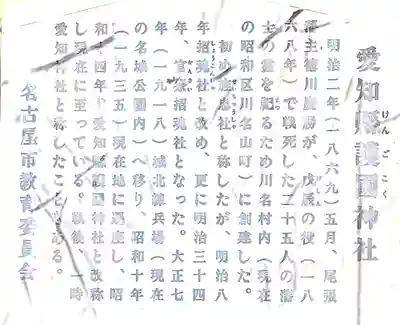 愛知縣護國神社
けんごこく
明治二年(一八六九)五月、尾張
藩主徳川慶勝が、戊辰の役(一八
六八年)で戦死した二十五人の藩
士の霊を祀るため川名村内(現在
の昭和区川名山町)に創建した。
初め旌忠社と称したが、明治八
せいちゅうしゃ
年招魂社と改め、更に明治三十四
しょうこんしゃ
年、官祭招魂社となった。大正七
かんさい
年(一九一八)城北練兵場(現在
の名城公園内)へ移り、昭和十年
(一九三五)現在地に遷座し、昭
和十四年、愛知縣護國神社と改称
し現在に至っている。戦後、一時
愛知神社と称したことがある。
名古屋市教育委員会